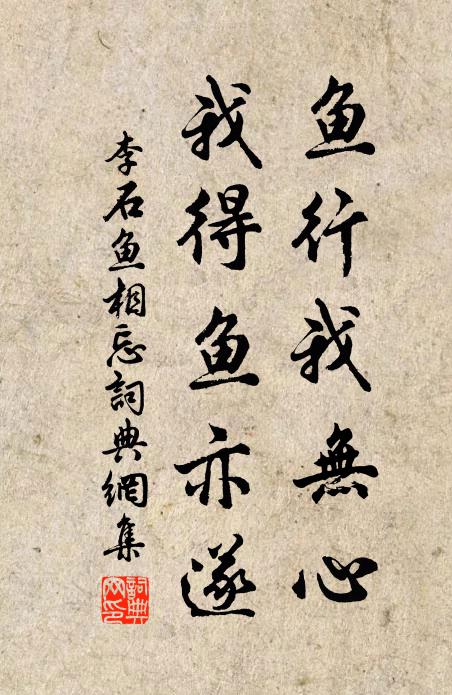 鱼行我無心
我得鱼亦遂
李石鱼相忘詞典網集
詞典網印